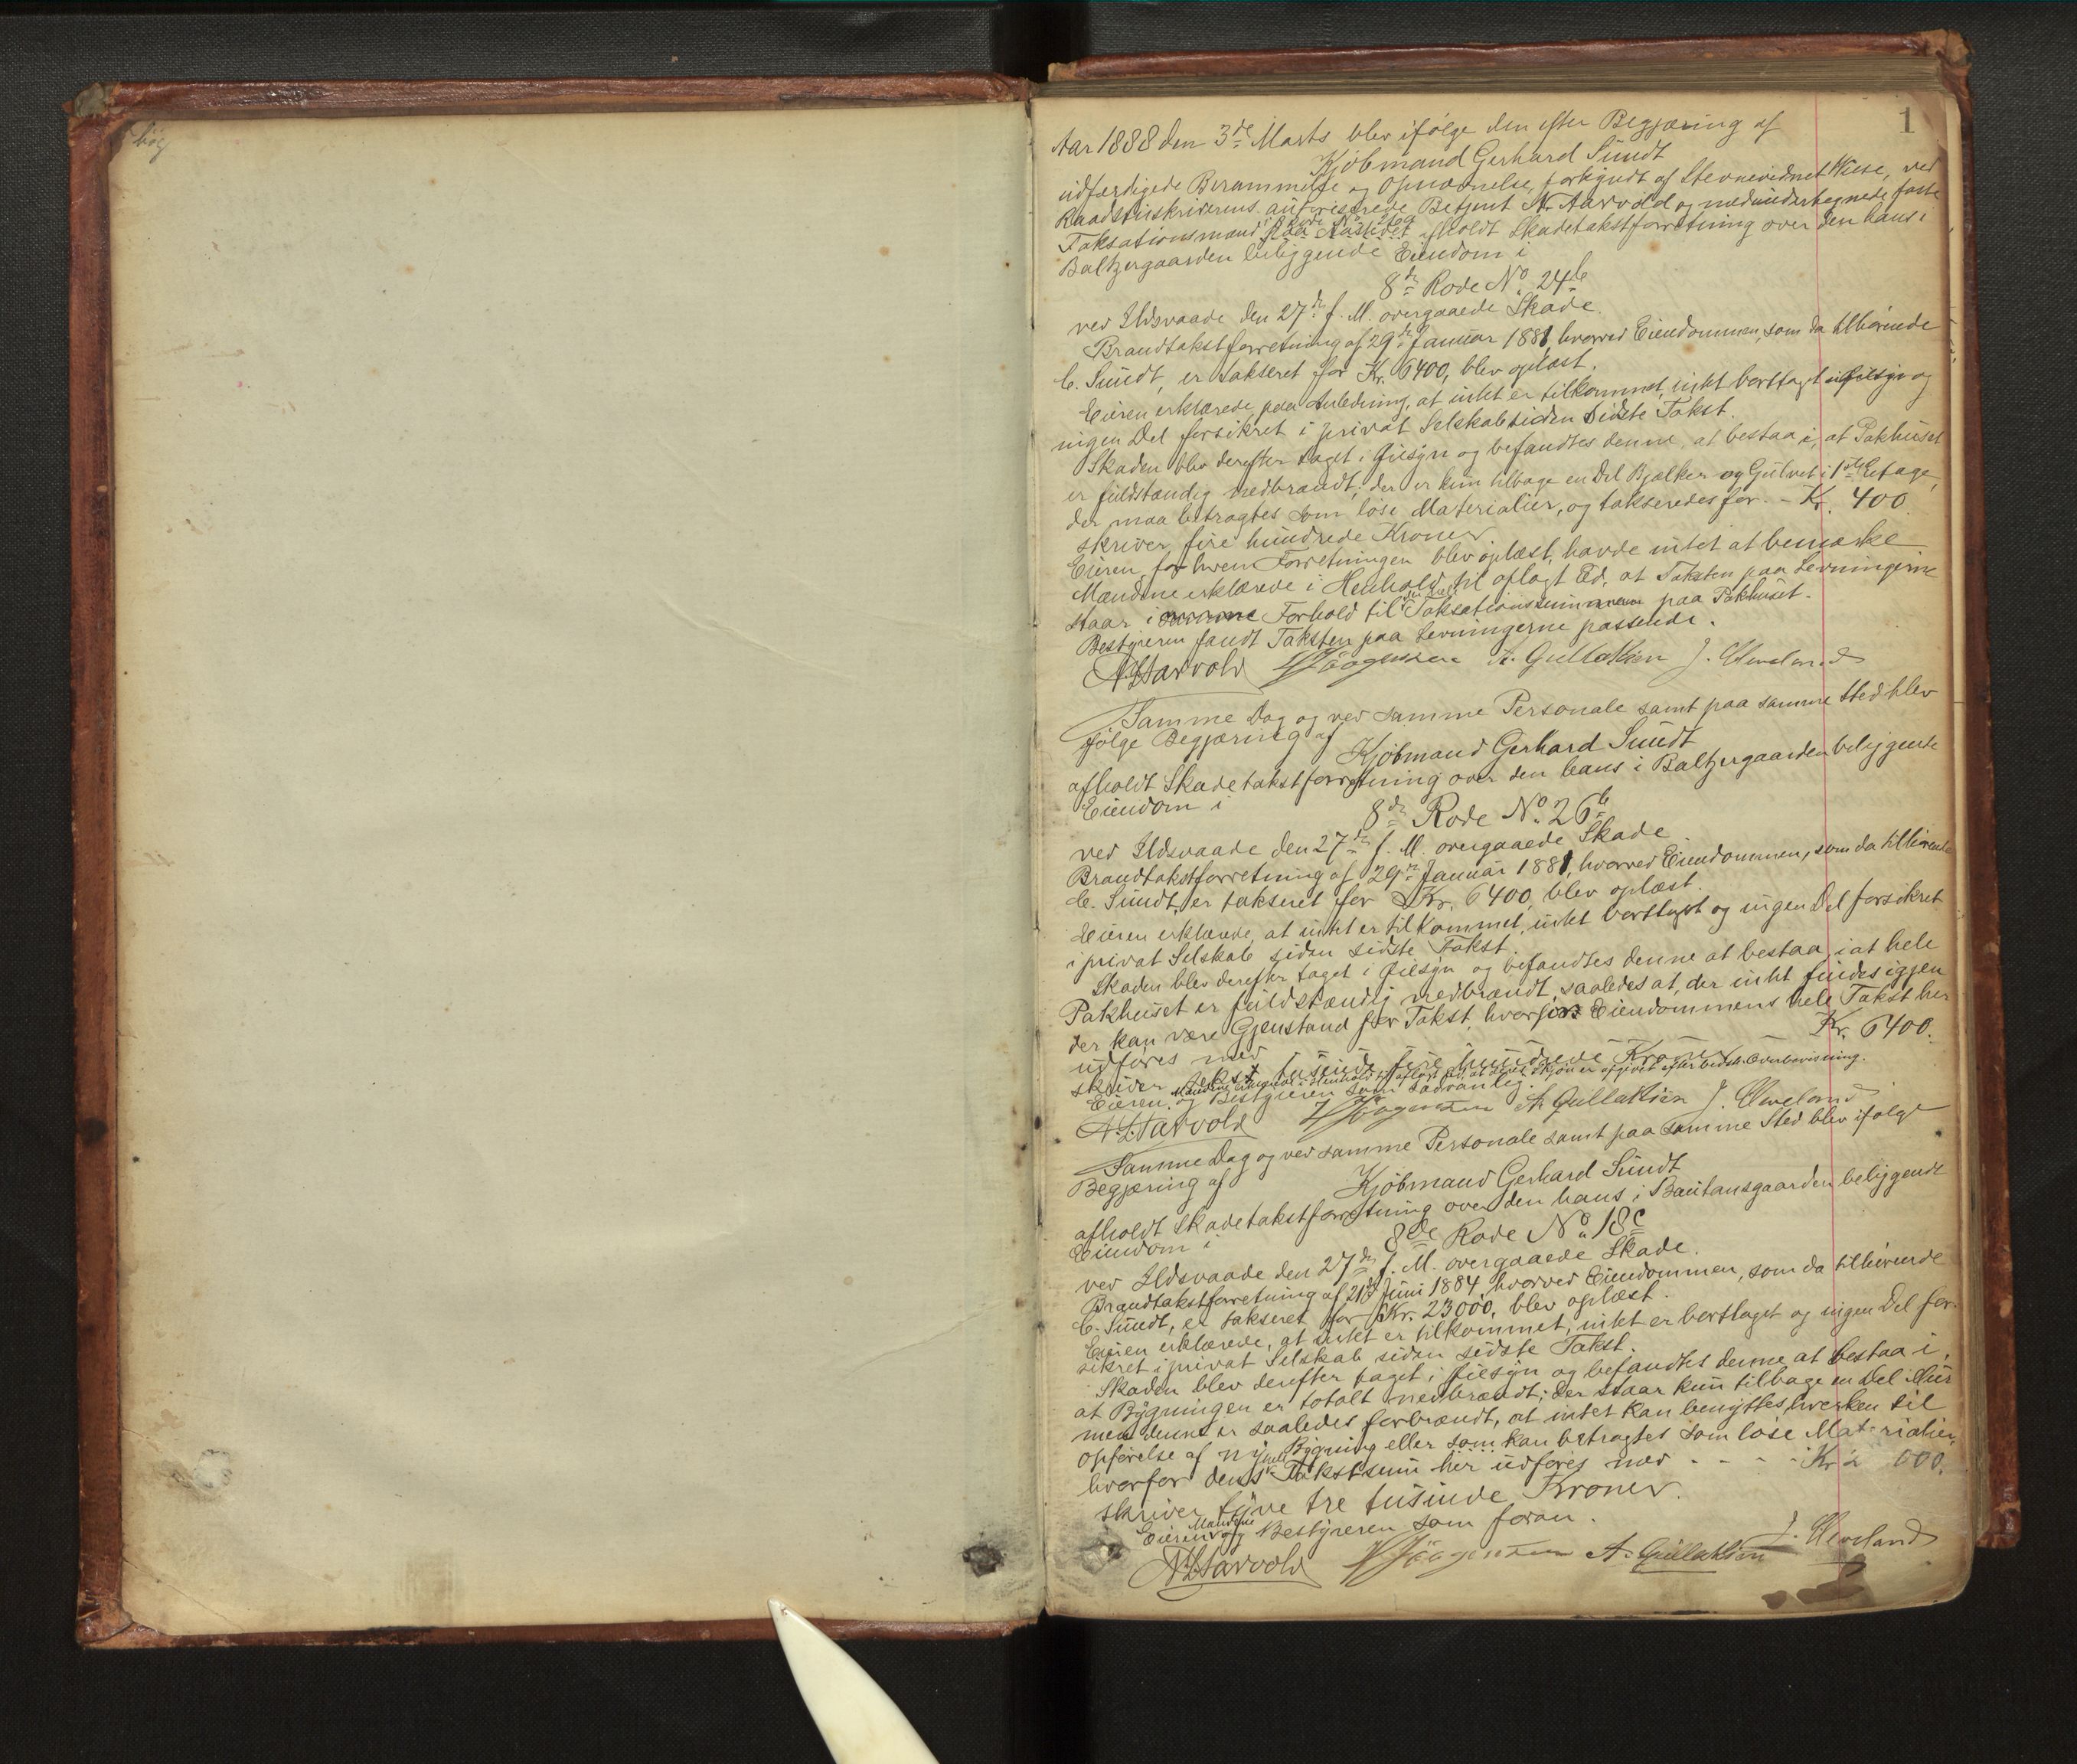 1
Aar 1888 den 3de Marts blev ifølge den efter Begjæring af
Kjøbmand Gerhard Sundt
udfærdigede Berammelse og Opnævnelse, forkyndt af Stevnevidnet Wiese, ved
Raadstuskriverens autoriserede Betjent N. Aarvold og medundertegnede faste
Taksationsmænd paa Aastedet afholdt Skadetakstforretning over den hans i
Baltzergaarden beliggende Eiendom i
8de Rode No. 24b
ved Ildsvaade den 27de f. M. overgaaede Skade.
Brandtakstforretning af 29de Januar 1881, hvorved Eiendommen, som da tilhørende
C. Sundt, er takseret for Kr. 6400, blev oplæst.
Eieren erklærede paa Anledning, at intet er tilkommet, intet borttaget og
ingen Del forsikret i privat Selskab siden sidste Takst.
Skaden blev derefter taget i Øiesyn og befandtes denne at bestaa i, at Pakhuset
er fuldstændig nedbrændt; der er kun tilbage en Del Bjælker og Gulvet i 1ste Etage,
der maa betragtes som løse Materialier, og takseredes for. - Kr. 400.
skriver fire hundrede Kroner
Eieren, for hvem Forretningen blev oplæst, havde intet at bemærke
Mændene erklærede i Henhold til aflagt Ed, at Taksten paa Levningerne
staar i samme Forhold til Taksationssummen paa Pakhuset.
Bestyreren fandt Taksten paa Levningerne passende.
N Aarvold Jørgensen A. Gullaksen J. Cleveland
Samme Dag og ved samme Personale samt paa samme Sted blev
ifølge Begjæring af
Kjøbmand Gerhard Sundt
afholdt Skadetakstforretning over den hans i Baltzergaarden beliggende
Eiendom i
8de Rode No. 26b
ved Ildsvaade den 27de f. M. overgaaede Skade.
Brandtakstforretning af 29de Januar 1881, hvorved Eiendommen, som da tilhørende
C. Sundt, er takseret for Kr. 6400, blev oplæst.
Eieren erklærede, at intet er tilkommet, intet borttaget og ingen Del forsikret
i privat Selskab siden sidste Takst.
Skaden blev derefter taget i Øiesyn og befandtes denne at bestaa i at hele
Pakhuset er fuldstændig nedbrændt, saaledes at der intet findes igjen
der kan være Gjenstand for Takst, hvorfor Eiendommens hele Takst her
udføres med Kr. 6400.
skriver sekst tusinde fire hundrede Kroner
Mændene i Henhold til aflagt Ed, at er afgivet efter bedste Overbevisning.
Eieren og Bestyreren som sædvanlig.
N Aarvold Jørgensen A. Gullaksen J. Cleveland
Samme Dag og ved samme Personale samt paa samme Sted blev ifølge
Begjæring af
Kjøbmand Gerhard Sundt
afholdt Skadetakstforretning over den hans i Bautansgaarden beliggende
Eiendom i
8de Rode No. 18c
ved Ildsvaade den 27de f. M. overgaaede Skade.
Brandtakstforretning af 21de Juni 1884, hvorved Eiendommen, som da tilhørende
C. Sundt, er takseret for Kr. 23000, blev oplæst.
Eieren erklærede, at intet er tilkommet, intet er borttaget og ingen Del for-
sikret i privat Selskab siden sidste Takst.
Skaden blev derefter taget i Øiesyn og befandtes denne at bestaa i,
at Bygningen er totalt nedbrændt; der staar kun tilbage en Del Mur
men denne er saaledes forbrændt, at intet kan benyttes, hverken til
Opførelse af ny Bygning eller som kan betragtes som løse Materialier,
hvorfor dens hele Takstsum her udføres med - - - - Kr. 000.
skriver tyve tre tusinde Kroner.
Mændene
Eieren og Bestyreren som foran.
N Aarvold Jørgensen A. Gullaksen J. Cleveland